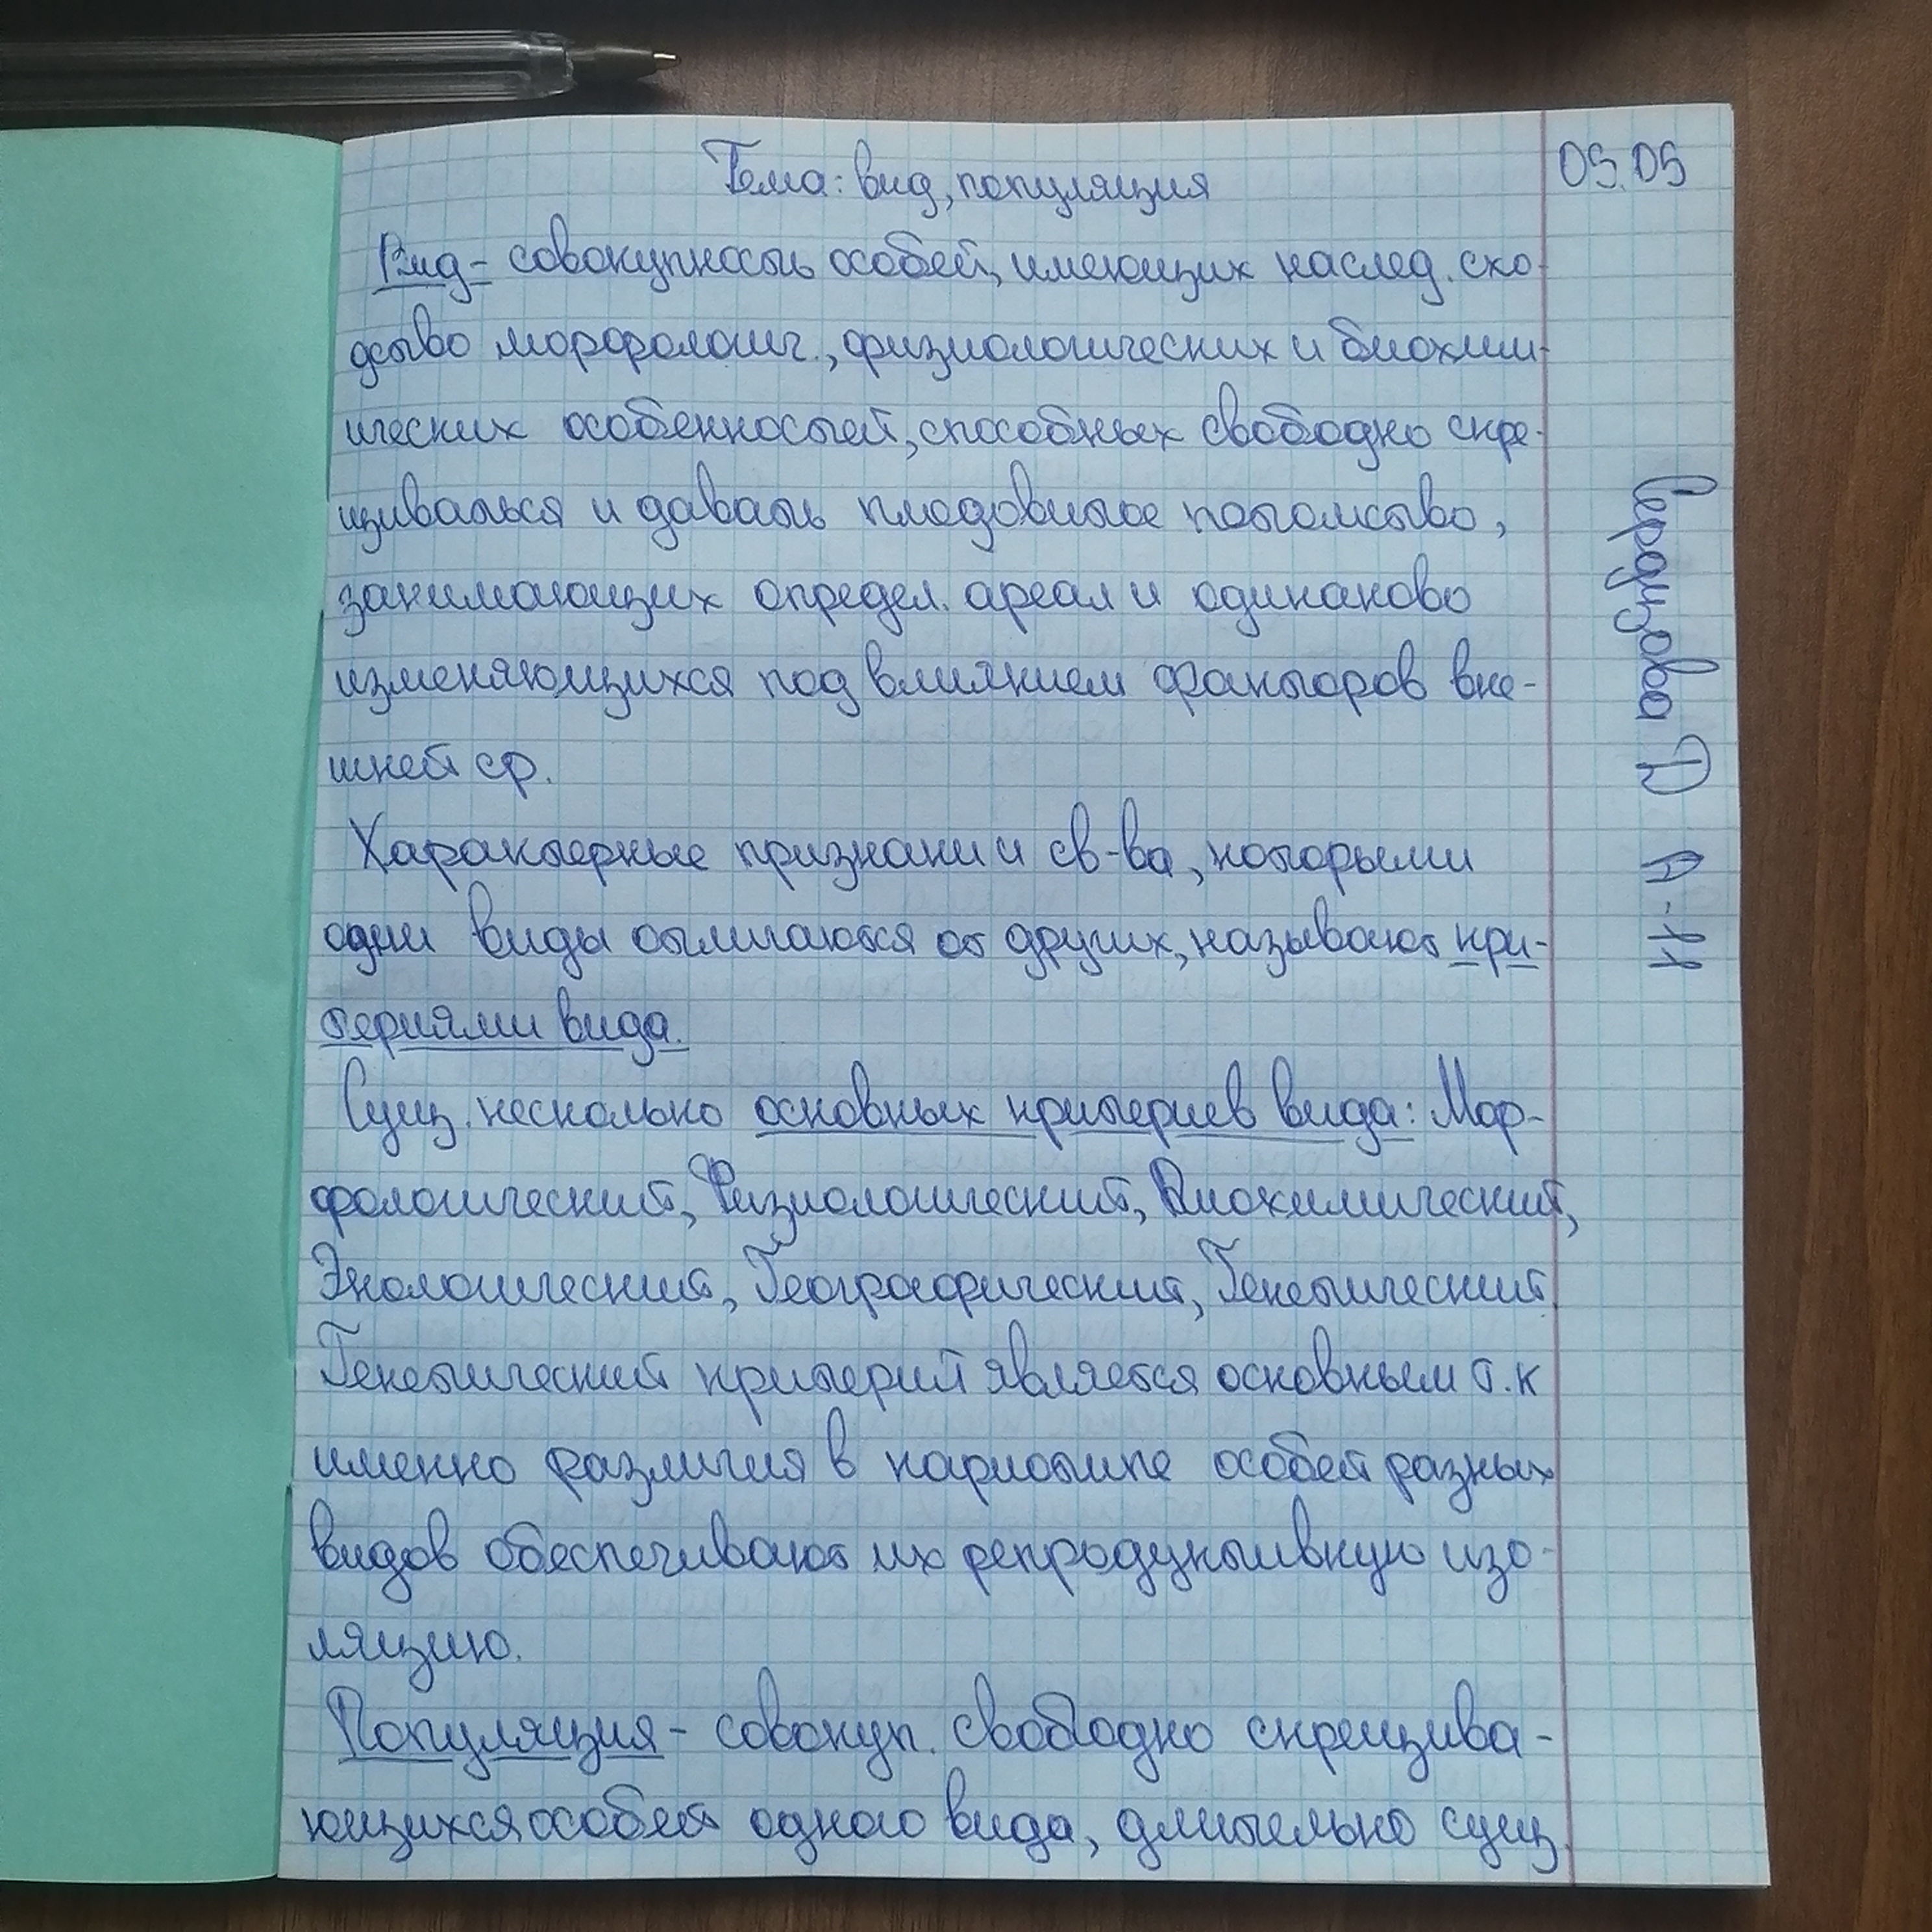 Тема: вид, популяция
05.05
Вид - совокупность особей, имеющих наслед. схо-
дство морфологич., физиологических и биохими-
ических особенностей, способных свободно скре-
щиваться и давать плодовитое потомство,
занимающих определ. ареал и одинаково
изменяющихся под влиянием факторов вне-
шней ср.
Характерные признаки и св-ва, которыми
одни виды отличаются от других, называют кри-
териями вида.
Сущ. несколько основных критериев вида: Мор-
фологический, Физиологический, Биохимический,
Экологический, Географический, Генетический.
Генетический критерий является основным т.к
именно различия в кариотипе особей разных
видов обеспечивают их репродуктивную изо-
ляцию.
Популяция - совокуп. свободно скрещива-
ющихся особей одного вида, длительно сущ.